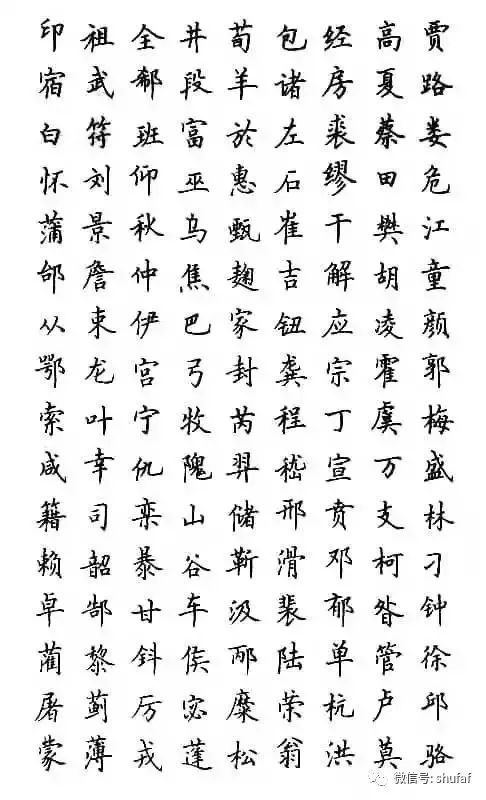 贾路娄危江童颜郭梅盛林刁钟徐邱骆
高夏蔡田樊胡凌霍虞万支柯昝管卢莫
经房裘缪干解应宗丁宣贲邓郁单杭洪
包诸左石崔吉钮龚程嵇邢滑裴陆荣翁
荀羊於惠甄麹家封芮羿储靳汲邴糜松
井段富巫乌焦巴弓牧隗山谷车侯宓蓬
全郗班仰秋仲伊宫宁仇栾暴甘钭厉戎
祖武符刘景詹束龙叶幸司韶郜黎蓟薄
印宿白怀蒲邰从鄂索咸籍赖卓蔺屠蒙
微信号: shufaf